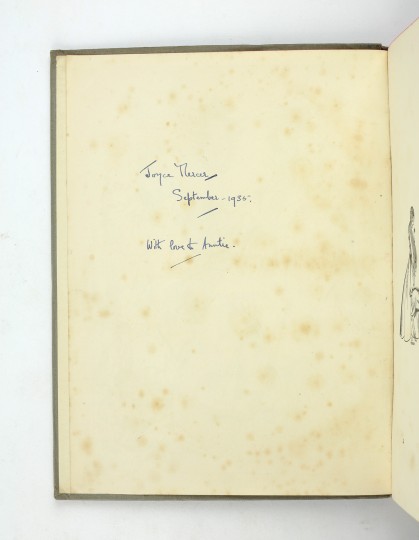 Joyce Mercer
September - 1935.
With love to Auntie.